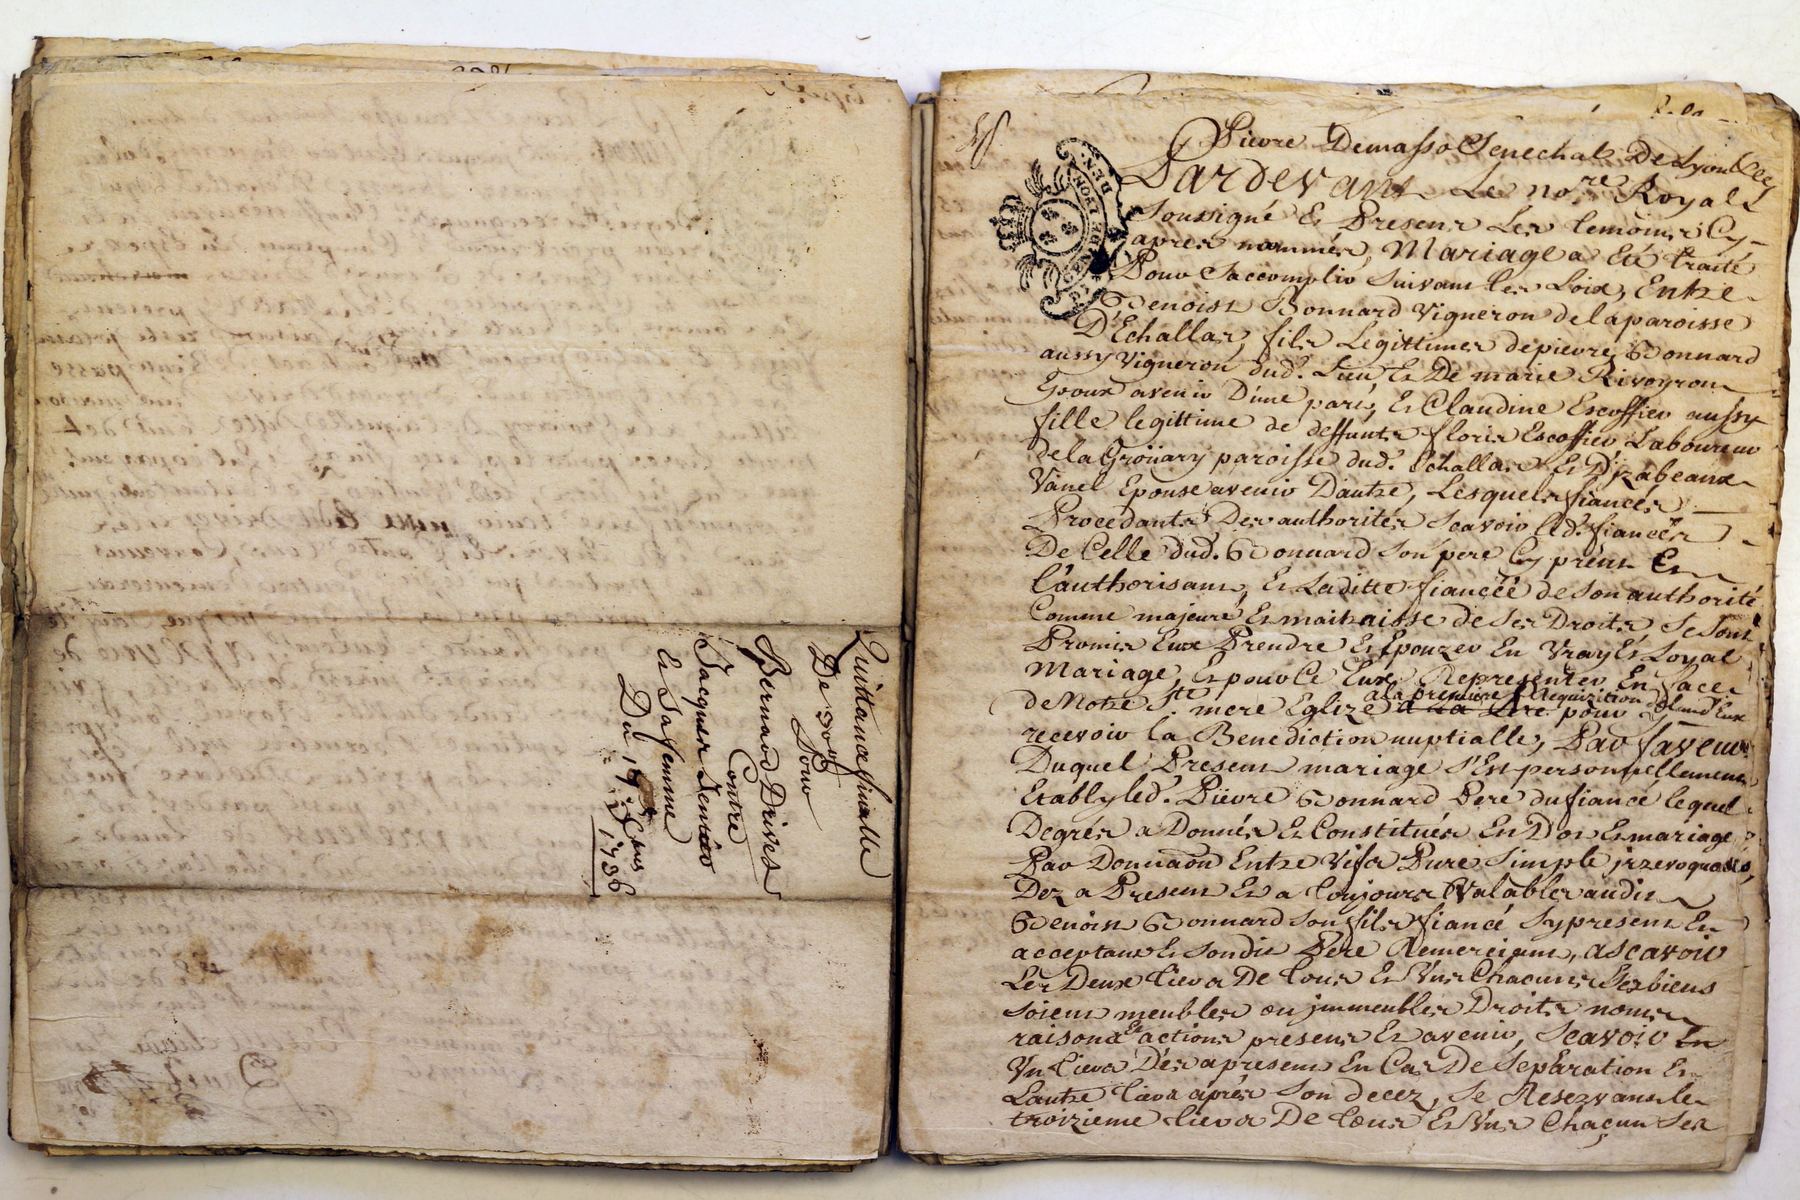 Quittance finalle
De 30#
Pour
Bernard Drivet
Contre
Jacques
Et Sa femme
Du 1736
Pierre Demasso Senechal De Lyon
Pardevant Le no.re Royal
Soussigné Et Present Les temoins Cy-
apres nommés, Mariage a Eté traité
Pour Saccomplir Suivant les Loix, Entre
Benoist Bonnard Vigneron de la paroisse
D'Echallas, fils Legittimes de pierre Bonnard
aussy Vigneron dud. Lieu Et De marie Rivoyron
Epoux avenir D'une part, Et Claudine Escoffier aussy
fille legittime de deffunts floris Escoffier Laboureur
de la paroisse dud. Echallas Et D'izabeaux
Vanel Epouse avenir D'autre, Lesquels fiancés
Procedants Des authorités Scavoir led. fiancé
De Celle dud. Bonnard Son pere Cy présent Et
L'authorisant, Et Laditte fianceé de Son authorité
Comme majeure Et maitraisse de Ses Droits Se Sont
Promis Eux Prendre Et Epouzer En Vray Et Loyal
Mariage, Et pour Ce Eux Representer En face
de Notre S.te mere Eglize a La premiere Requizition pour
recevoir la Benediction nuptialle, Par faveur
Duquel Present mariage S'Est personnellement
Etably led. Pierre Bonnard Pere du fiancé lequel
Degrés a Donnés Et Constitués En Dot Et mariage
Par Donnaõn Entre Vifs Pure Simple jrrevoquable,
Dez a Present Et a toujours Valables audit
Benoist Bonnard Son fils fiancé Sy present Et
acceptant Et Sondit Pere Remerciant, a Scavoir
Les Deux tiers De tous Et Uns Chacuns Ses biens
Soient meubles ou jmmeubles Droits noms
raisons Et actions present Et avenir, Scavoir
Un tiers Dés apresent En Cas De Separation Et
Lautre tiers après Son decez, Se Reservant le
troizieme tiers De tous Et Uns Chacun Ses